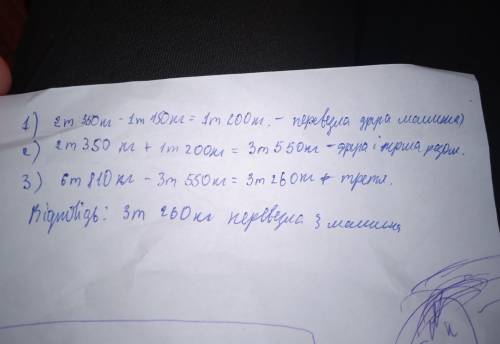 1) 2т 350кг - 1т 150кг = 1т 200кг. - перевезла друга машина)
2) 2т 350 кг + 1т 200кг = 3т 550кг - друга і перша разом.
3) 6т 810кг - 3т 550кг = 3т 260кг - третя.
Відповідь: 3т 260кг перевезла 3 машина